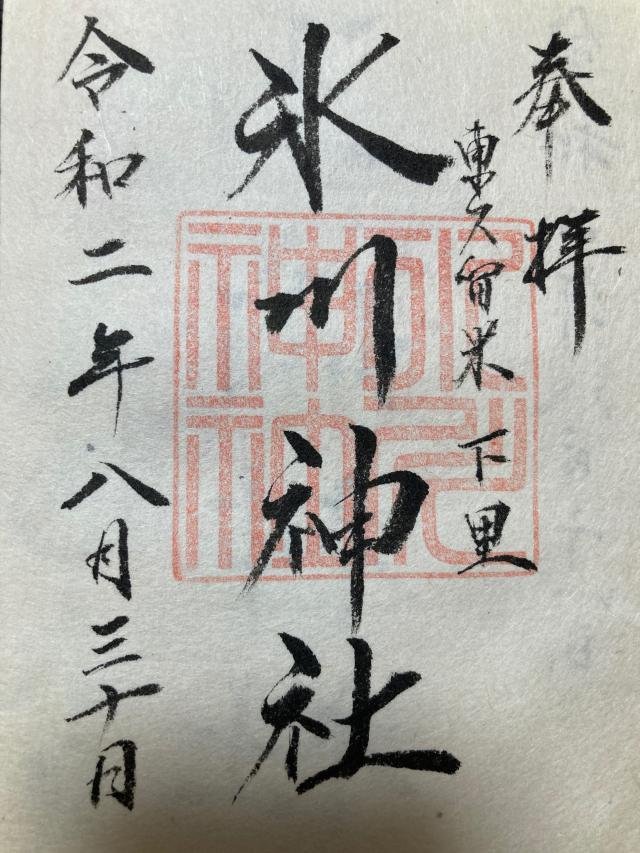 奉拝
東久留米 下里
氷川神社
令和二年八月三十日